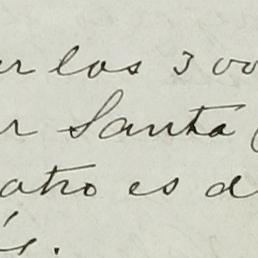 er los 300
r Santa
atro es d
és.